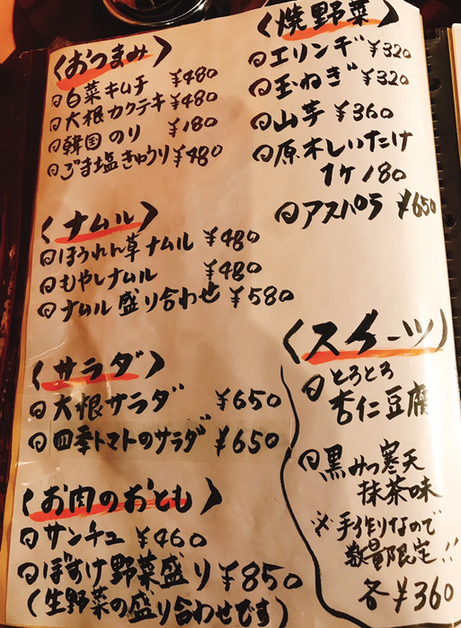 〈おつまみ〉
白菜キムチ ¥480
大根カクテキ ¥480
韓国のり ¥180
ごま塩きゅうり ¥480
〈ナムル〉
ほうれん草ナムル ¥480
もやしナムル ¥480
ナムル盛り合わせ ¥580
〈サラダ〉
大根サラダ ¥650
四季トマトのサラダ ¥650
〈お肉のおとも〉
サンチュ ¥460
ぼすけ野菜盛り ¥850
(生野菜の盛り合わせです)
〈焼野菜〉
エリンギ ¥320
玉ねぎ ¥320
山芋 ¥360
原木しいたけ
1ケ180
アスパラ ¥650
〈スイーツ〉
とろとろ
杏仁豆腐
黒みつ寒天
抹茶味
※手作りなので
数量限定!!
各¥360